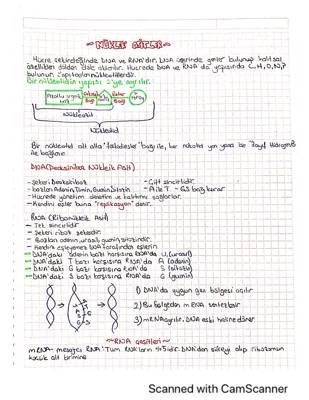 ~NÜKLEİK ASİTLER~
Hücre çekirdeğinde DNA ve RNA'dır. DNA üzerinde genler bulunup kalıtsal
özellikleri dölden döle aktarılır. Hücrede DNA ve RNA da yapısında C, H, O, N, P
bulunur. Yapıtaşları nükleotitlerdir.
Bir nükleotidin yapısı 2'ye ayrılır.
Nükleozid
Nükleotid
Bir nükleotid alt alta "fosfodiester" bağ ile, bir nokta yan yana ise zayıf Hidrojen
ile bağlanır.
DNA (Deoksiriboz Nükleik Asit)
- Şekeri Deoksiriboz
- Çift sincirlidir.
- bazları Adenin, Timin, Guanin, Sitozin
- A ile T - G S bağ kurar
- Hücrede yönetim, denetim ve kalıtımı sağlarlar.
- Kendini eşler buna "replikasyon" denir.
RNA (Ribo Nükleik Asit)
- Tek sincirlidir
- Şekeri riboz şekeridir.
- Bazları adenin, urasil, guanin, sitozindir.
- Kendini eşleyemez DNA tarafından sentezlenir
DNA'daki Adenin bazı karşısına RNA'da U (urasil)
DNA'daki T bazı karşısına RNA'da A (adenin)
DNA'daki G bazı karşısına RNA'da S (sitozin)
DNA'daki S bazı karşısına RNA'da G (guanin)
1) DNA'da uygun gen bölgesi açılır
2) Bu bölgeden mRNA sentezlenir
3) mRNA ayrılır. DNA eski haline döner
~RNA çeşitleri~
mRNA - mesajcı RNA: Tüm RNA'ların %5'idir. DNA'dan şifreyi alıp ribozomun
küçük alt birimine
Scanned with CamScanner